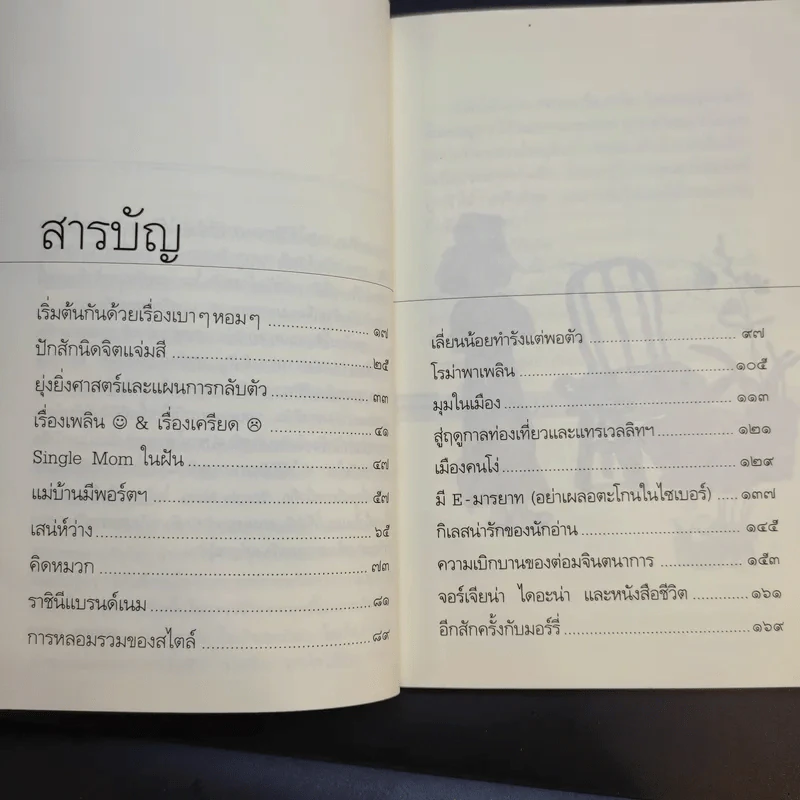 สารบัญ
เริ่มต้นกันด้วยเรื่องเบาๆหอมๆ ................... ๑๗
ปักสักนิดจิตแจ่มสี ................... ๒๕
ยุ่งยิ่งศาสตร์และแผนการกลับตัว ................... ๓๓
เรื่องเพลิน ☺ & เรื่องเครียด ☹ ................... ๔๑
Single Mom ในฝัน ................... ๔๗
แม่บ้านมีพอร์ตฯ ................... ๕๗
เสน่ห์ว่าง ................... ๖๕
คิดหมวก ................... ๗๓
ราชินีแบรนด์เนม ................... ๘๑
การหลอมรวมของสไตล์ ................... ๘๙
เลี่ยนน้อยทำรังแต่พอตัว ................... ๙๗
โรม่าพาเพลิน ................... ๑๐๕
มุมในเมือง ................... ๑๑๓
สู่ฤดูกาลท่องเที่ยวและแทรเวลลิทฯ ................... ๑๒๑
เมืองคนโง่ ................... ๑๒๙
มี E-มารยาท (อย่าเผลอตะโกนในไซเบอร์) ..... ๑๓๗
กิเลสน่ารักของนักอ่าน ................... ๑๔๕
ความเบิกบานของต่อมจินตนาการ ................... ๑๕๓
จอร์เจียน่า ไดอะน่า และหนังสือชีวิต ................... ๑๖๑
อีกสักครั้งกับมอร์รี่ ................... ๑๖๙